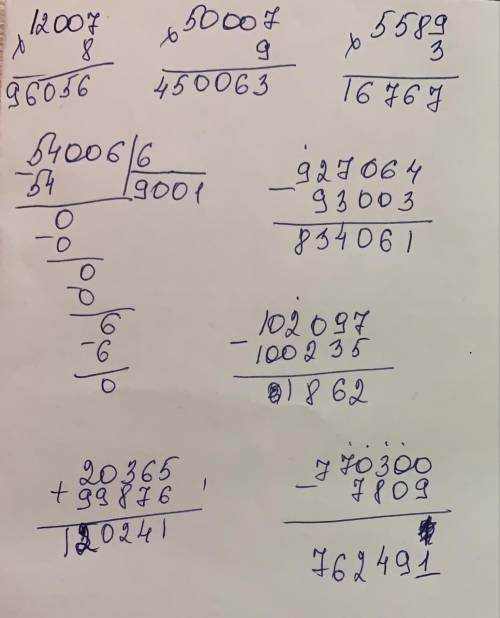 12007
× 8
96056
50007
× 9
450063
5589
× 3
16767
54006 | 6
- 54 | 9001
0
- 0
0
- 0
6
- 6
0
927064
- 93003
834061
102097
- 100235
1862
20365
+ 99876
120241
770300
- 7809
762491